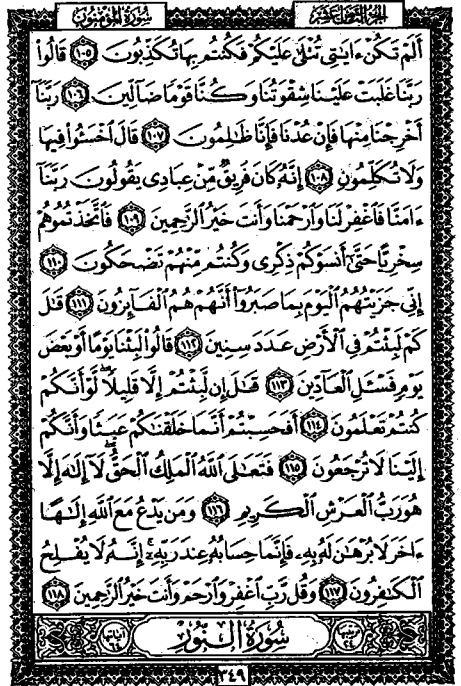 الجزء الثامن عشر
سورة المؤمنون
أَلَمْ تَكُنْ ءَايَٰتِي تُتْلَىٰ عَلَيْكُمْ فَكُنتُم بِهَا تُكَذِّبُونَ ١٠٥ قَالُوا۟
رَبَّنَا غَلَبَتْ عَلَيْنَا شِقْوَتُنَا وَكُنَّا قَوْمًا ضَآلِّينَ ١٠٦ رَبَّنَآ
أَخْرِجْنَا مِنْهَا فَإِنْ عُدْنَا فَإِنَّا ظَٰلِمُونَ ١٠٧ قَالَ ٱخْسَـُٔوا۟ فِيهَا
وَلَا تُكَلِّمُونِ ١٠٨ إِنَّهُۥ كَانَ فَرِيقٌ مِّنْ عِبَادِى يَقُولُونَ رَبَّنَآ
ءَامَنَّا فَٱغْفِرْ لَنَا وَٱرْحَمْنَا وَأَنتَ خَيْرُ ٱلرَّٰحِمِينَ ١٠٩ فَٱتَّخَذْتُمُوهُمْ
سِخْرِيًّا حَتَّىٰٓ أَنسَوْكُمْ ذِكْرِى وَكُنتُم مِّنْهُمْ تَضْحَكُونَ ١١٠
إِنِّى جَزَيْتُهُمُ ٱلْيَوْمَ بِمَا صَبَرُوٓا۟ أَنَّهُمْ هُمُ ٱلْفَآئِزُونَ ١١١ قَٰلَ
كَمْ لَبِثْتُمْ فِى ٱلْأَرْضِ عَدَدَ سِنِينَ ١١٢ قَالُوا۟ لَبِثْنَا يَوْمًا أَوْ بَعْضَ
يَوْمٍ فَسْـَٔلِ ٱلْعَآدِّينَ ١١٣ قَٰلَ إِن لَّبِثْتُمْ إِلَّا قَلِيلًا لَّوْ أَنَّكُمْ
كُنتُمْ تَعْلَمُونَ ١١٤ أَفَحَسِبْتُمْ أَنَّمَا خَلَقْنَٰكُمْ عَبَثًا وَأَنَّكُمْ
إِلَيْنَا لَا تُرْجَعُونَ ١١٥ فَتَعَٰلَى ٱللَّهُ ٱلْمَلِكُ ٱلْحَقُّ لَآ إِلَٰهَ إِلَّا
هُوَ رَبُّ ٱلْعَرْشِ ٱلْكَرِيمِ ١١٦ وَمَن يَدْعُ مَعَ ٱللَّهِ إِلَٰهًا
ءَاخَرَ لَا بُرْهَٰنَ لَهُۥ بِهِۦ فَإِنَّمَا حِسَابُهُۥ عِندَ رَبِّهِۦٓ إِنَّهُۥ لَا يُفْلِحُ
ٱلْكَٰفِرُونَ ١١٧ وَقُل رَّبِّ ٱغْفِرْ وَٱرْحَمْ وَأَنتَ خَيْرُ ٱلرَّٰحِمِينَ ١١٨
سُورَةُ النُّورِ
٣٤٩